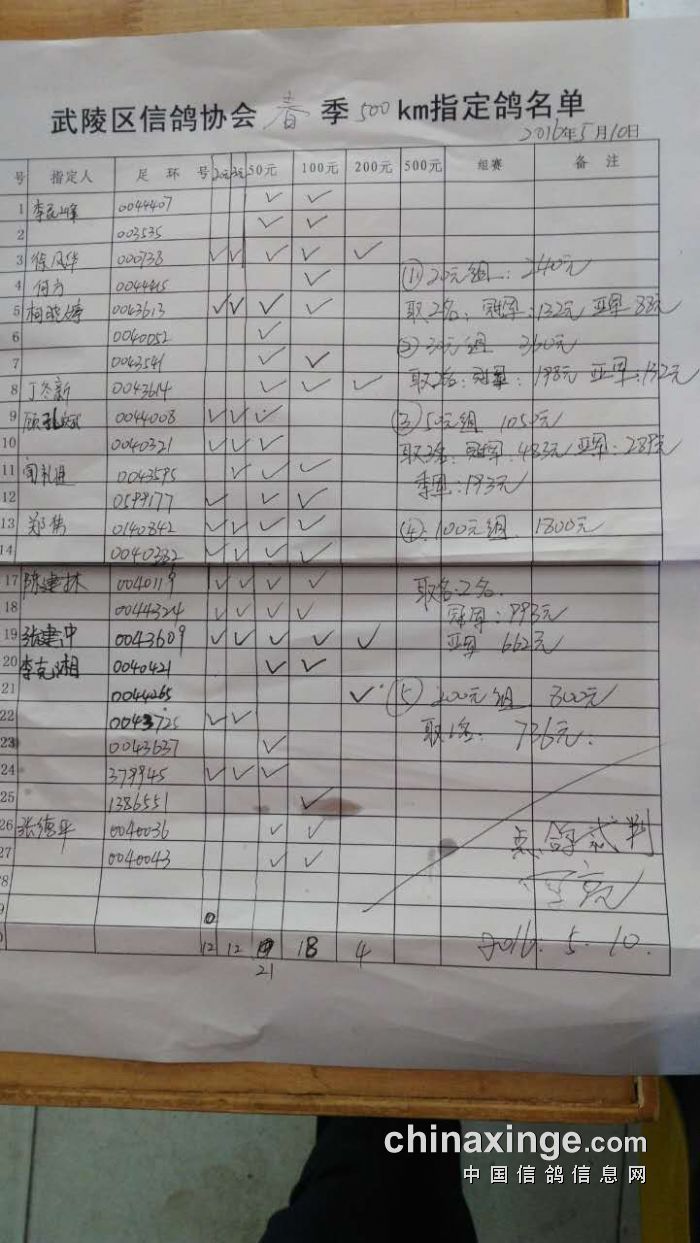 武陵区信鸽协会 春 季 500 km指定鸽名单
2016年5月10日
号 指定人 足环号 20元 30元 50元 100元 200元 500元 组赛 备注
1 0044407 ✓ ✓
2 003535 ✓ ✓
3 徐凤华 000738 ✓ ✓ ✓ ✓ ✓
4 何方 0044415 ✓ (1) 20元组: 240元
5 柯晓婷 0043613 ✓ ✓ ✓ ✓ 取2名: 冠军:132元 亚军88元
6 0040052 ✓ (2) 30元组 360元
7 0043541 ✓ ✓
8 丁冬新 0043614 ✓ ✓ ✓ 取2名: 冠军: 198元 亚军:132元
9 0044008 ✓ ✓ ✓ (3) 50元组 1050元
10 0040321 ✓ ✓ ✓ 取3名: 冠军:483元 亚军:289元
11 0043595 ✓ ✓ ✓ 季军:193元
12 0599177 ✓ ✓ ✓
13 郑伟 0140842 ✓ ✓ ✓ ✓ (4) 100元组 1800元
14 0040282 ✓ ✓ ✓ ✓
17 陈建林 0040119 ✓ ✓ ✓ ✓ 取名:2名
18 0044324 ✓ ✓ ✓ ✓ 冠军:993元
19 张建中 0043609 ✓ ✓ ✓ ✓ ✓ 亚军 662元
20 李克湘 0040421 ✓ ✓
21 0044265 ✓ (5) 200元组 800元
22 0043725 ✓ ✓
23 0043637 ✓ 取1名: 736元
24 379945 ✓ ✓ ✓
25 1386551 ✓
26 张德平 0040036 ✓ ✓
27 0040043 ✓ ✓
28
9 0
12 12 21 18 4 2016.5.10.
chinaxinge.com
中国信鸽信息网